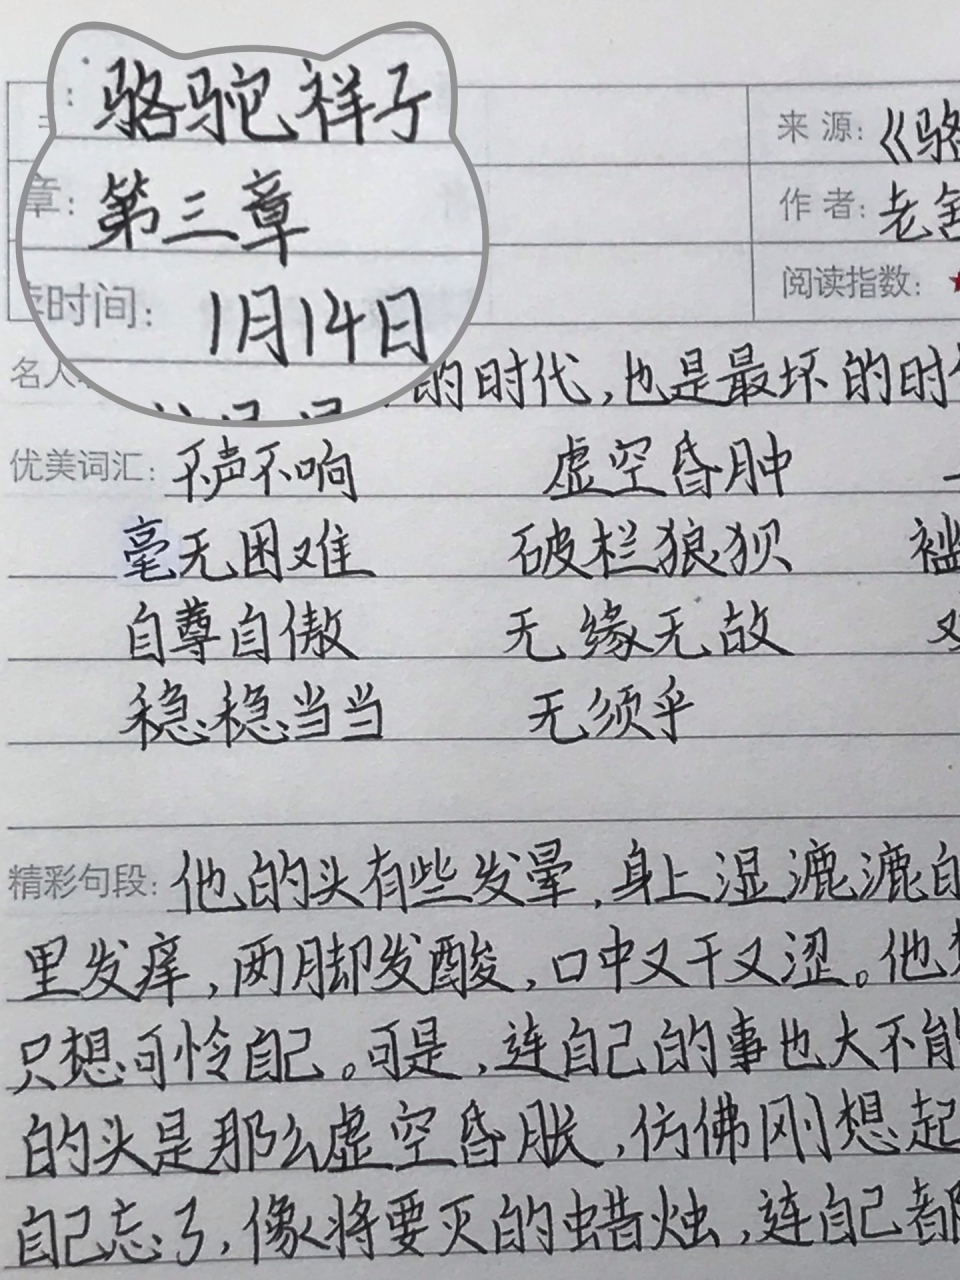 ：骆驼祥子
来 源：《骆
章：第三章
作 者：老舍
时间：1月14日
阅读指数：
名人 的时代，也是最坏的时
优美词汇：不声不响 虚空昏肿
毫无困难 破栏狼狈 褴
自尊自傲 无缘无故
稳稳当当 无须乎
精彩句段：他的头有些发晕，身上湿漉漉的
里发痒，两脚发酸，口中又干又涩。他
只想可怜自己。可是，连自己的事也大不能
的头是那么虚空昏胀，仿佛刚想起
自己忘了，像将要灭的蜡烛，连自己都